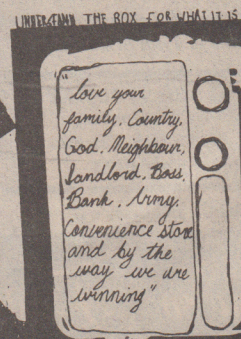 UNDERSTAND THE BOX FOR WHAT IT IS
"love your
family, Country,
God, Neighbour,
Landlord, Boss,
Bank, Army,
Convenience store
and by the
way we are
winning"